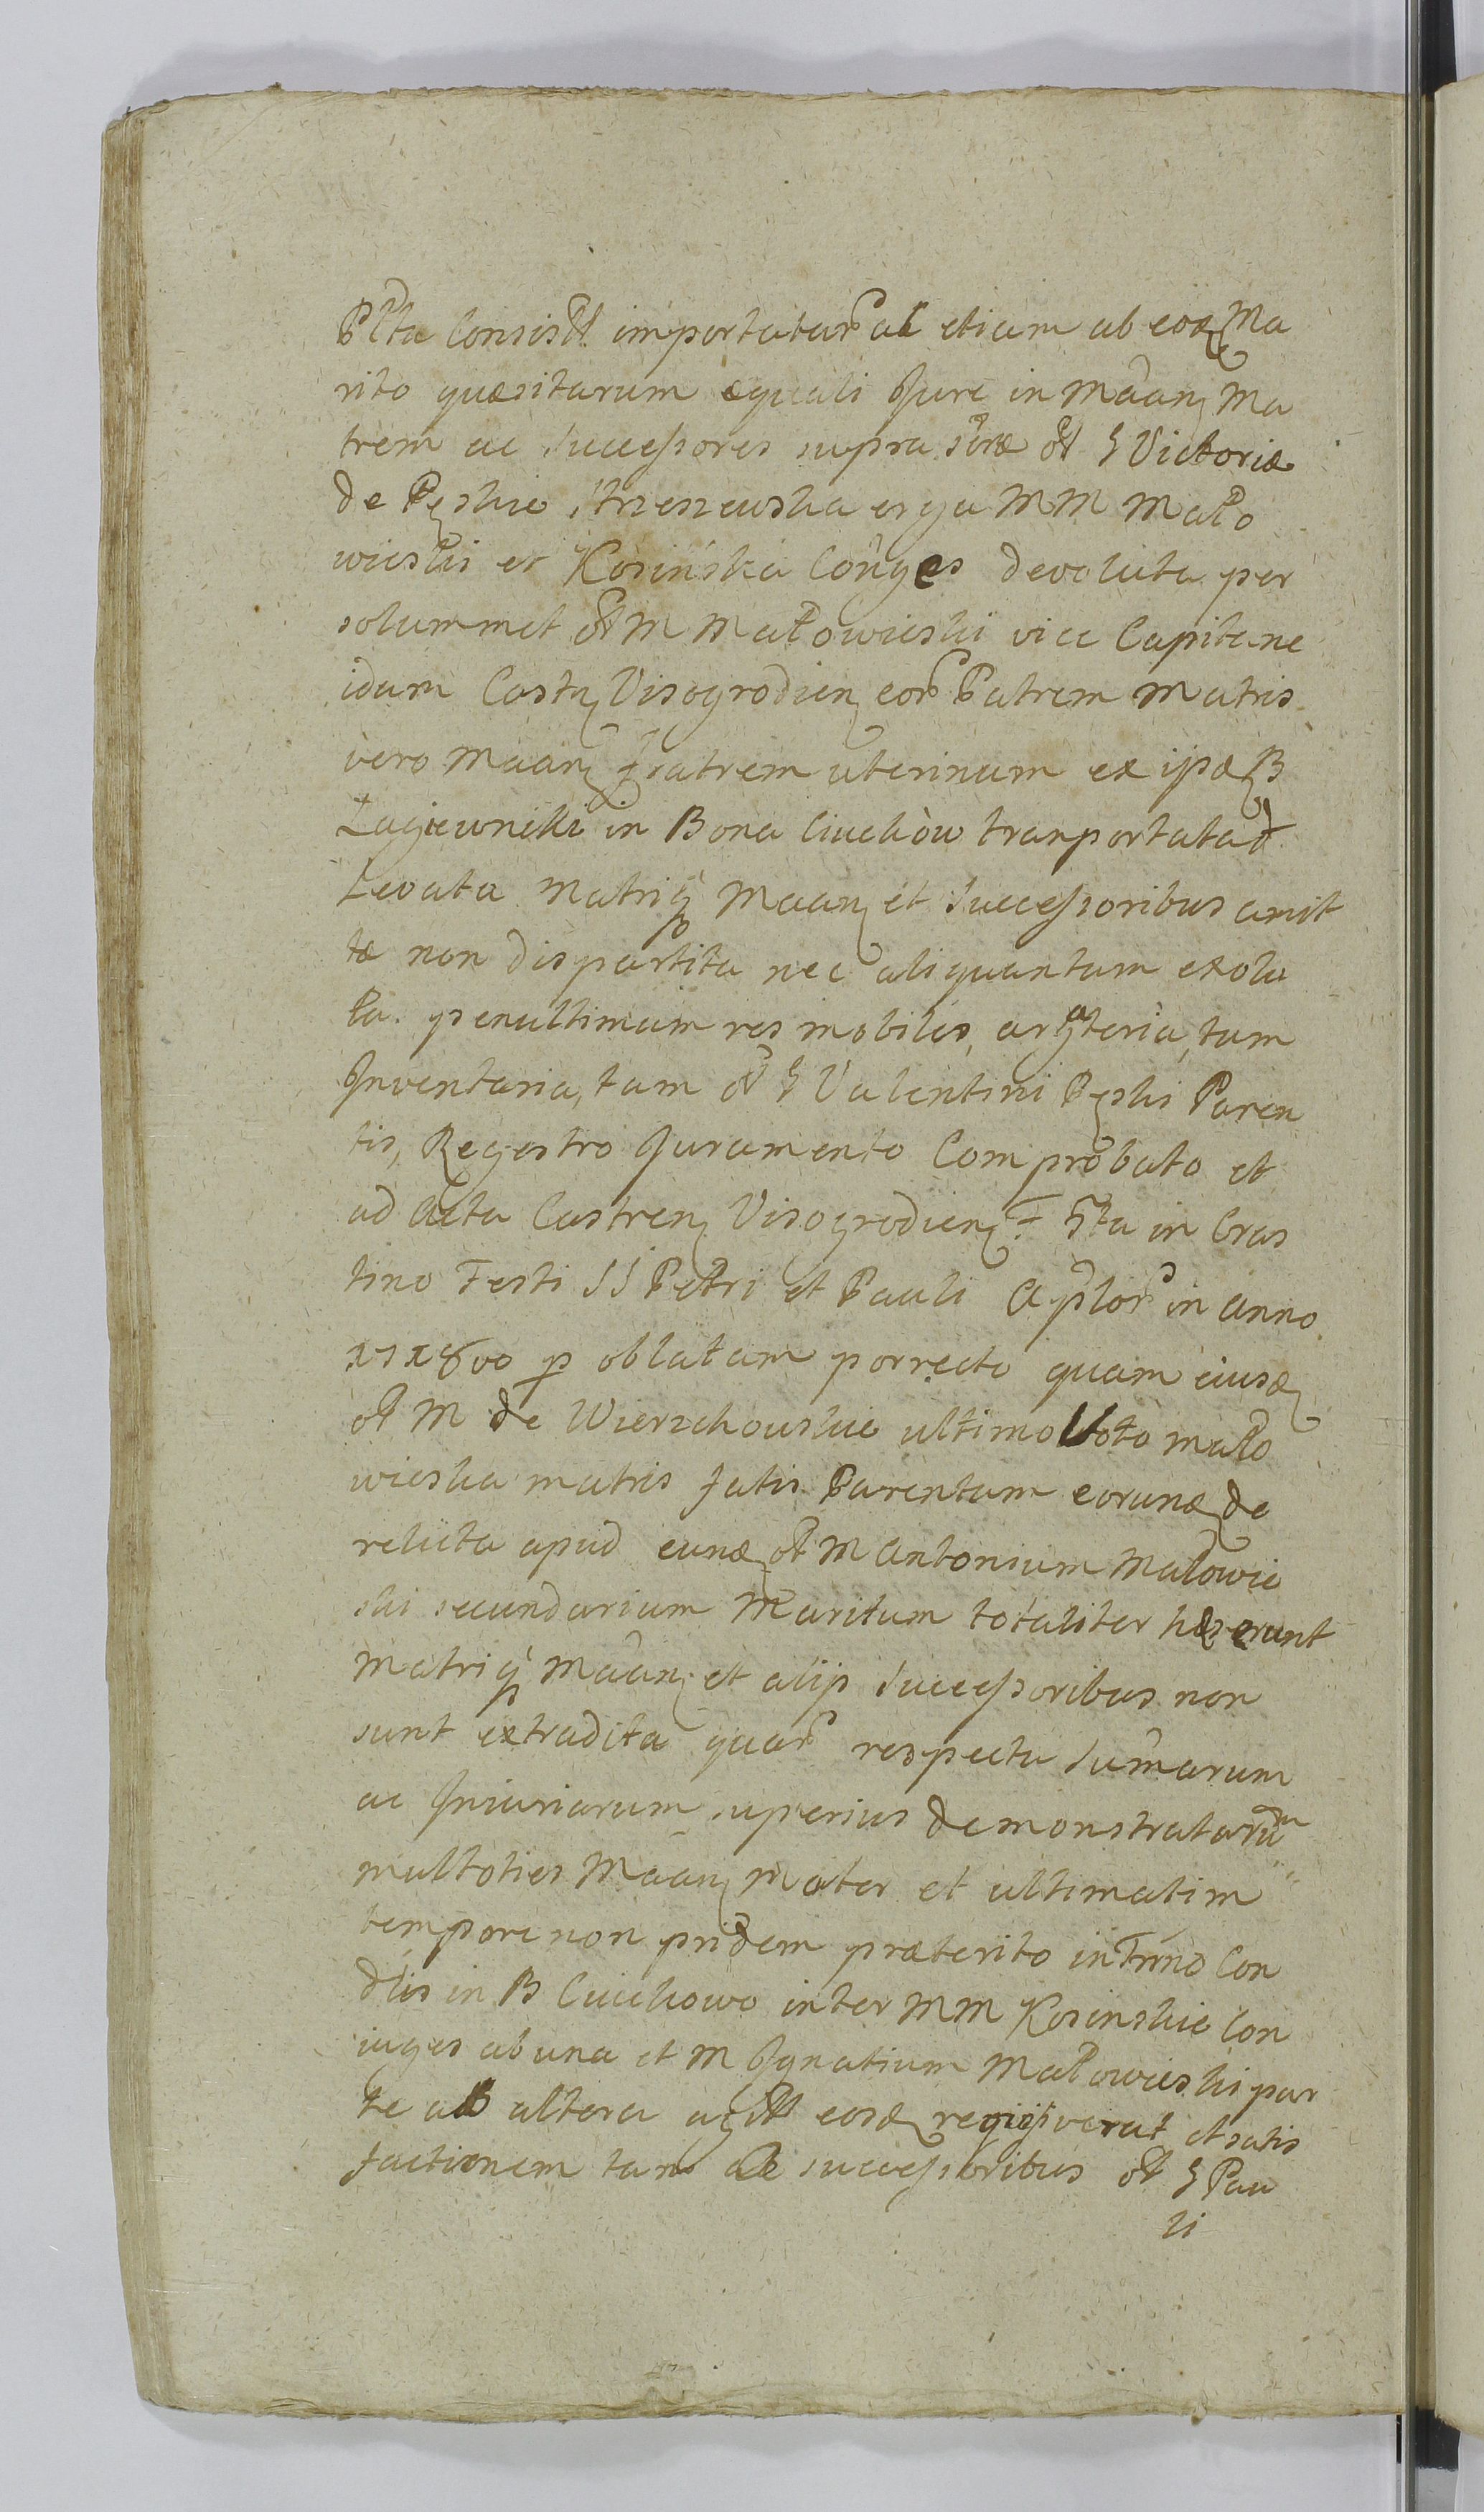 Plta Consistt importatar ac etiam ab eod Ma
rito quæsitarum æquali Jure in Maan Ma
trem ac Successores supra sua ol G Victoriæ
de Pęskie Strzeszewska erga MM Mało
wieski et Kosińska Conges devoluta per
solummet ol M Małowieski vice Capitane
idum Castr Visogrodien eor Patrem Matris
vero Maan Fratrem uterinum ex ijsd B
Łagiewniki in Bona Ciuchòw transportata
Levata Matriq Maan et Successoribus amit
tæ non dispartita nec aliquantum exolu
ta. penultimum res mobiles, argteria, tam
Inventaria, tam ol G Valentini Pęski Paren
tis, Regestro Juramento Comprobato et
ad Acta Castren Visogrodien Fta in Cras
tino Festi SS Petri et Pauli Aplor in anno
p oblatam porrecto quam eiusd
ol M de Wierzchouskie ultimo Voto Mało
wieska matris fatis Parentum eorund de
relicta apud eund ol M Antonium Małowie
ski secundarium Maritum totaliter hæserunt
Matriq Maan et alijs Successoribus non
sunt extradita quar respectu Sumarum
ac Iniuriarum superius demonstratarum
multoties Maan Mater et ultimatim
tempore non pridem præterito in Trmno Con
dlis in B Ciuchowo inter MM Kosinskie Con
iuges ab una et M Ignatium Małowieski par
te ab altera agitt eosd requisiverat et satis
factionem tam de successoribus ol G Pau
li